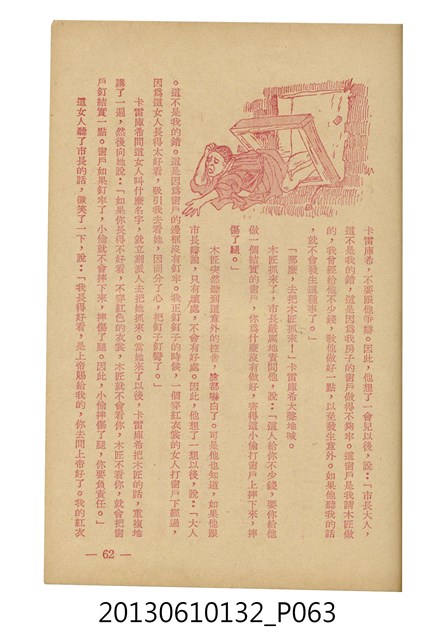 卡雷庫希，不要跟他爭辯。因此，他想了一會兒以後，說：「市長大人，
這不是我的錯，這是因為我房子的窗戶做得不夠牢。這窗戶是我請木匠做
的，我曾經給他不少錢，敎他做好一點，以至發生意外。如果他聽我的話
，就不會發生這種事了。」
「那麼，去把木匠抓來！」卡雷庫希大聲地喊。
木匠抓來了，市長嚴厲地責問他，說：「這人給你不少錢，要你給他
做一個結實的窗戶，你爲什麼沒有做好，害得這小偷打窗戶上摔下來，摔
傷了腿。」
木匠突然聽到這意外的控告，臉都嚇白了。可是他也知道，如果他跟
市長辯論，只有壞處，不會有好處。因此，他想了一想以後，說：「大人
。這不是我的錯。這是因爲窗戶的邊框沒有釘牢。我正釘釘子的時候，一個穿紅衣裳的女人打窗戶下經過，
因爲這女人長得太好看，吸引我去看她，因而分了心，把釘子釘彎了。」
卡雷庫希問這女人叫什麼名字，就立刻派人去把她抓來。當她來了以後，卡雷庫希把木匠的話，重複地
講了一遍，然後向她說：「如果你長得不好看，不穿紅色的衣裳，木匠就不會看你，木匠不看你，就會把窗
戶釘結實一點。窗戶如果釘牢了，小偷就不會摔下來，摔傷了腿。因此，小偷摔傷了腿，你要負責任。」
這女人聽了市長的話，微笑了一下，說：「我長得好看，是上帝賜給我的，你去問上帝好了。我的紅衣
— 62 —
20130610132_P063